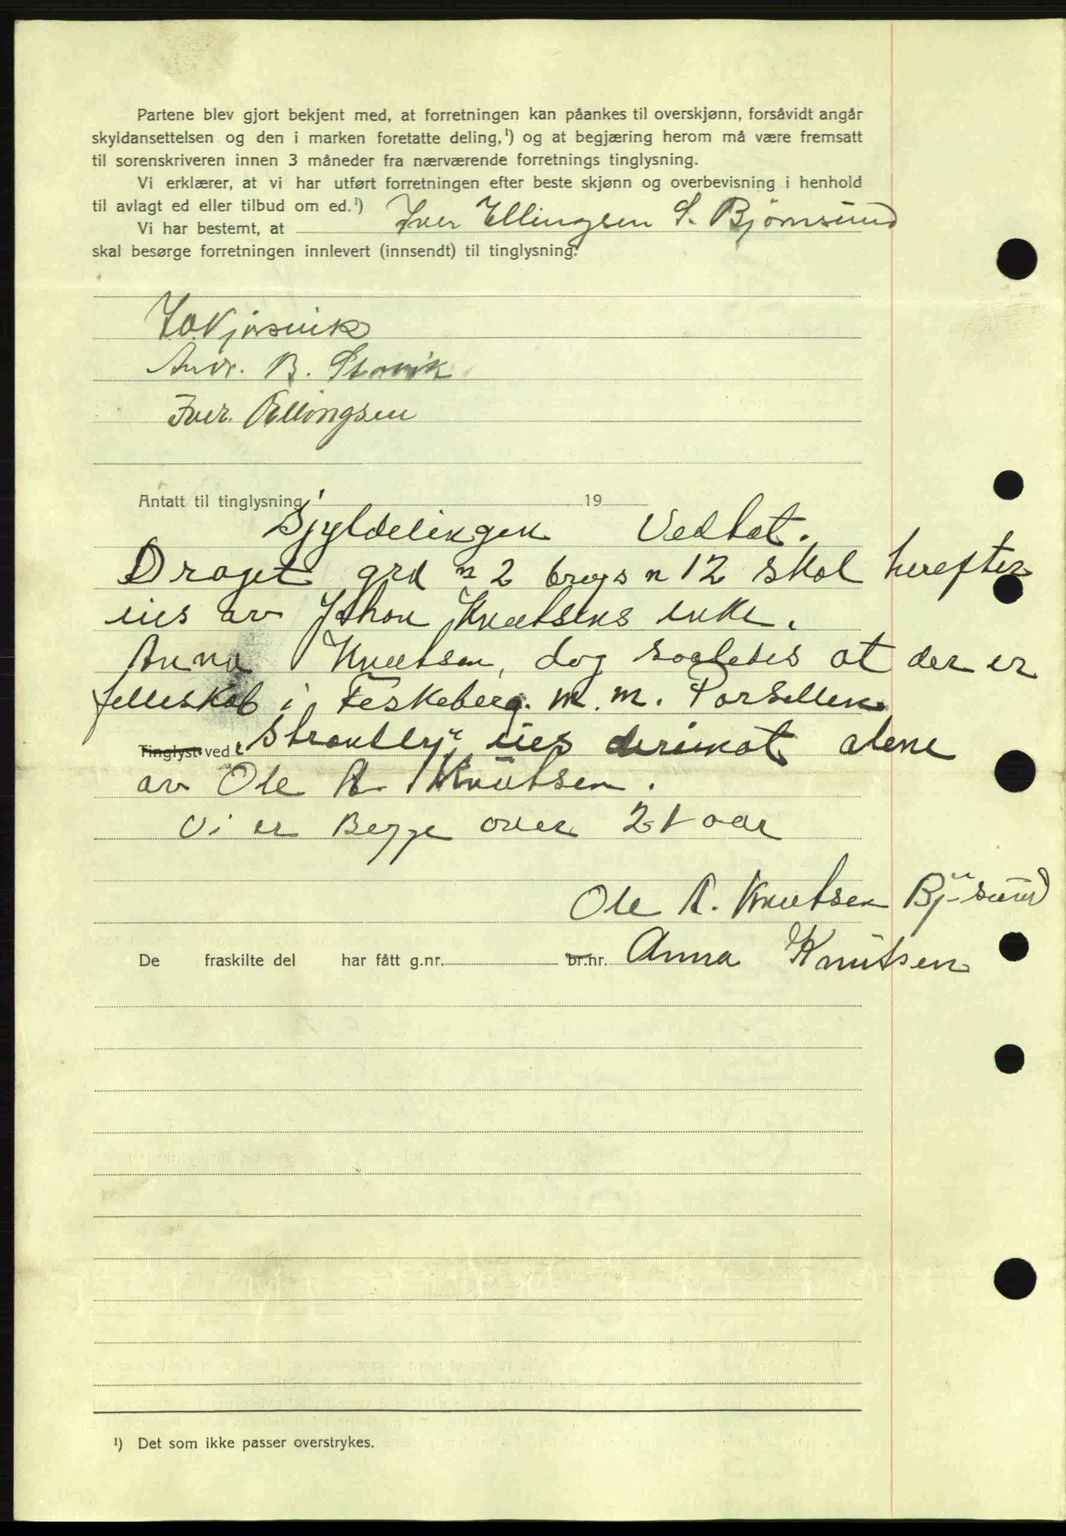 Partene blev gjort bekjent med, at forretningen kan påankes til overskjønn, forsåvidt angår
skyldansettelsen og den i marken foretatte deling,¹) og at begjæring herom må være fremsatt
til sorenskriveren innen 3 måneder fra nærværende forretnings tinglysning.
Vi erklærer, at vi har utført forretningen efter beste skjønn og overbevisning i henhold
til avlagt ed eller tilbud om ed.¹)
Vi har bestemt, at Iver Ellingsen S. Bjørnsund
skal besørge forretningen innlevert (innsendt) til tinglysning.
Andr. B. Stavik
Iver Ellingsen
Antatt til tinglysning 19
Vedtat.
Draget grd n 2 brugs n 12 skal herefter
eies av Johan Knutsens enke.
Anna Knutsen, dog saaledes at der er
felleskab i Feskeberg. m. m. Parsellen
Tinglyst ved „Strandly" eies derimot alene
av Ole A. Knutsen.
Vi er Begge over 21 aar
Ole A. Knutsen Bj-sund
De fraskilte del har fått g.nr. br.nr. Anna Knutsen
¹) Det som ikke passer overstrykes.